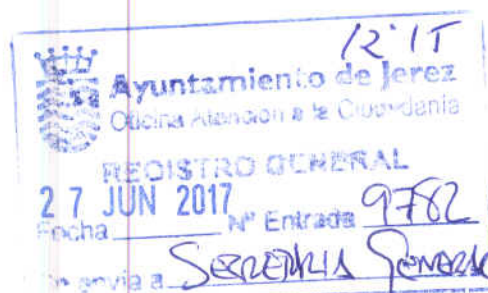 12'15
Ayuntamiento de Jerez
Oficina Atención a la Ciudadanía
REGISTRO GENERAL
27 JUN 2017
Fecha Nº Entrada 9782
Se envía a SECRETARIA GENERAL